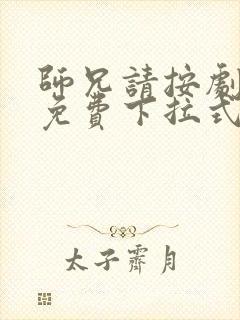 師兄請按劇
免費下拉式
太子霽月